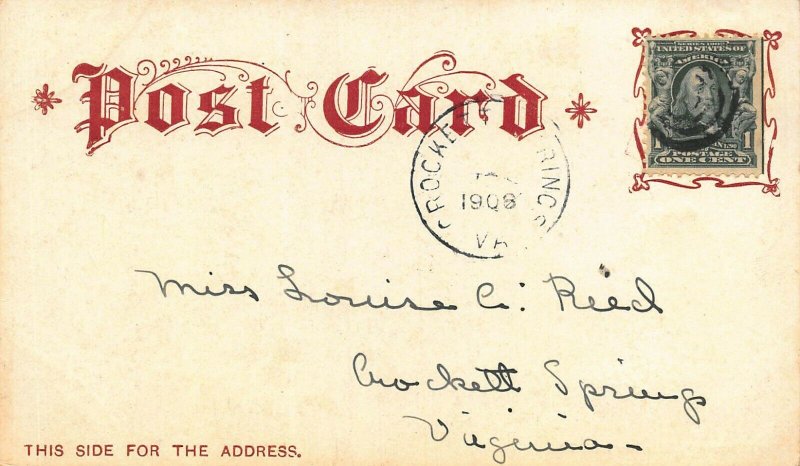 Post Card
SERIES 1902
UNITED STATES OF
AMERICA
1 1
POSTAGE
ONE CENT
CROCKETT SPRINGS
1908
VA
Miss Louise C. Reed
Crockett Springs
Virginia
THIS SIDE FOR THE ADDRESS.